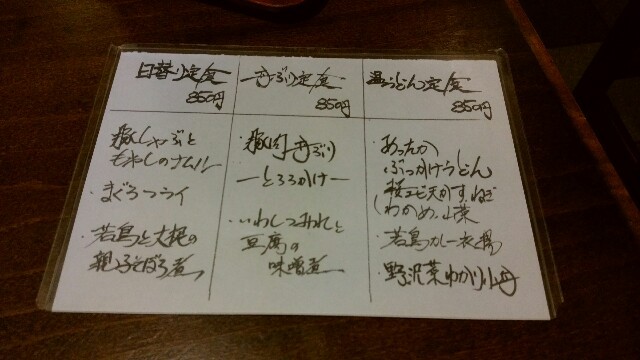 日替り定食
850円
豚しゃぶと
もやしのナムル
・まぐろフライ
・若鳥と大根の
親子そぼろ煮
丼ぶり定食
850円
・豚肉丼ぶり
ーとろろかけー
・いわしつみれと
豆腐の
味噌煮
温うどん定食
850円
・あったか
ぶっかけうどん
桜エビ天かす、ねぎ
わかめ、山菜
・若鳥カレー衣揚
・野沢菜わかり小丼